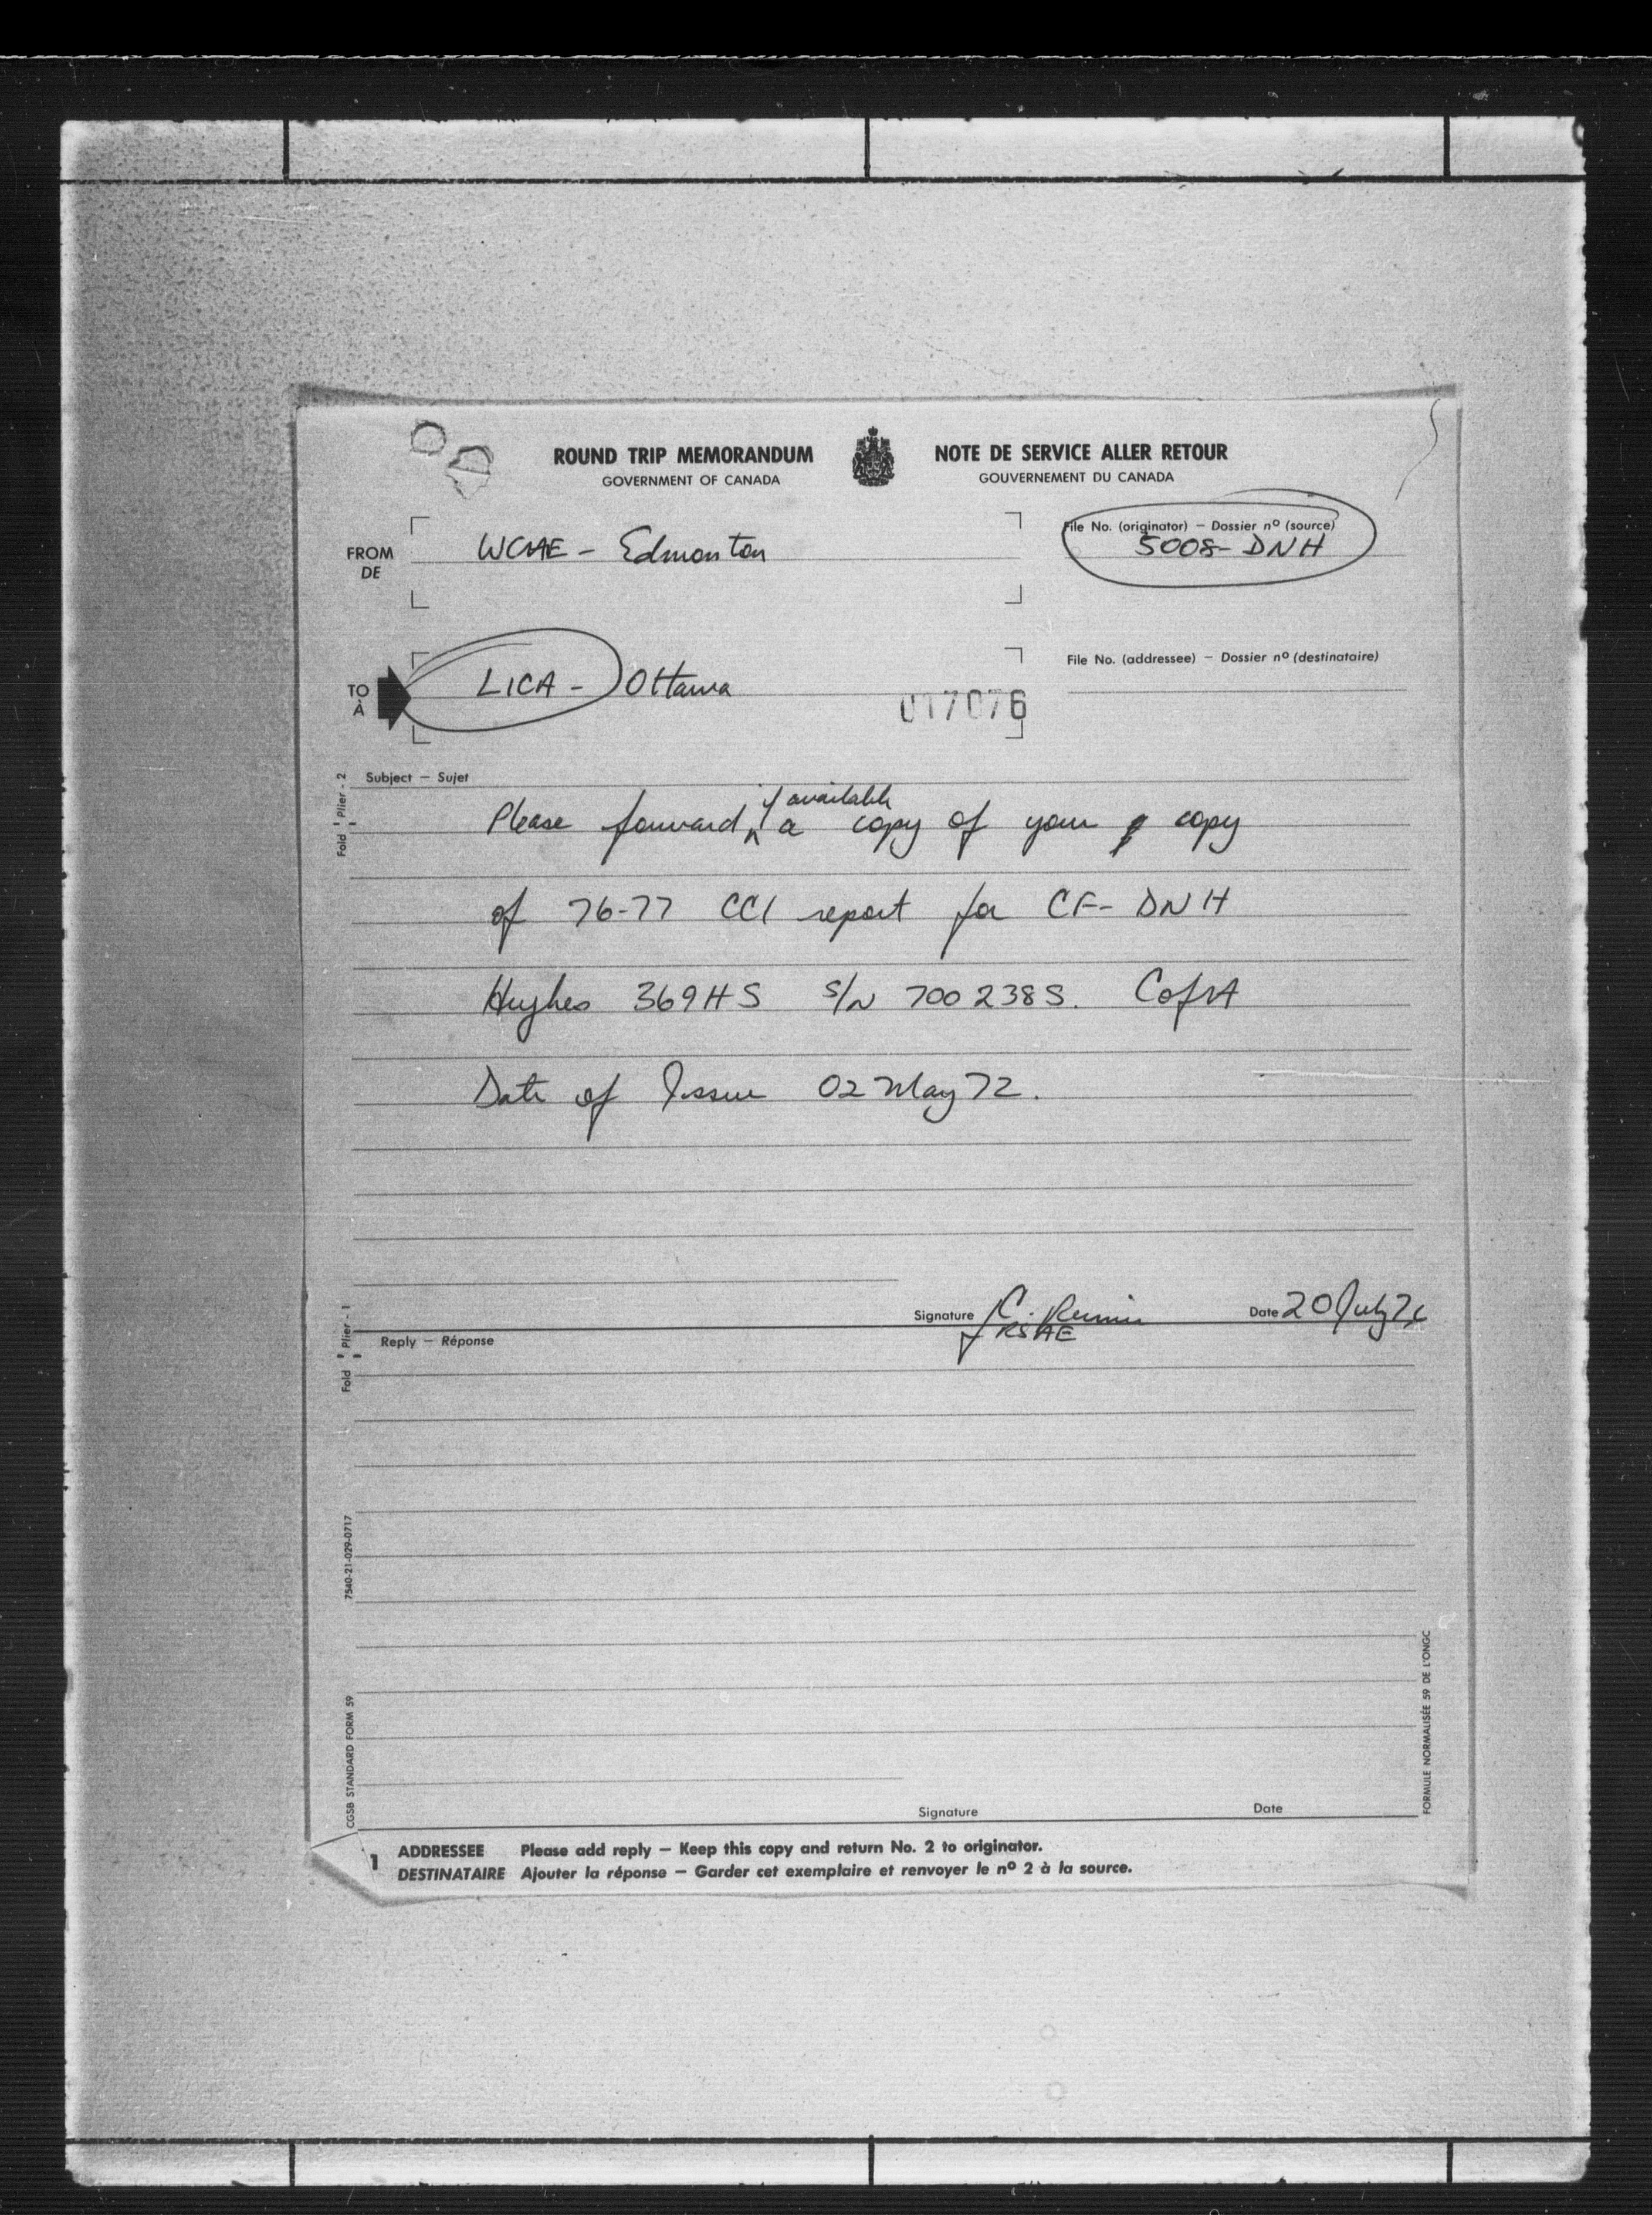 ROUND TRIP MEMORANDUM
GOVERNMENT OF CANADA
NOTE DE SERVICE ALLER RETOUR
GOUVERNEMENT DU CANADA
File No. (originator) – Dossier nº (source)
5008- DNH
FROM
DE
WCAE - Edmonton
File No. (addressee) – Dossier nº (destinataire)
TO
À
LICA - Ottawa
017076
Subject – Sujet
Fold Plier - 2
if available
Please forward, a copy of your copy
of 76-77 CCI report for CF- DNH
Hughes 369HS S/N 700238S. CofA
Date of Issue 02 May 72.
Signature C.
RSAE
Date 20 July 76
Fold Plier - 1
Reply – Réponse
7540-21-029-0717
CGSB STANDARD FORM 59
FORMULE NORMALISÉE 59 DE L'ONGC
Signature
Date
1
ADDRESSEE Please add reply – Keep this copy and return No. 2 to originator.
DESTINATAIRE Ajouter la réponse – Garder cet exemplaire et renvoyer le nº 2 à la source.